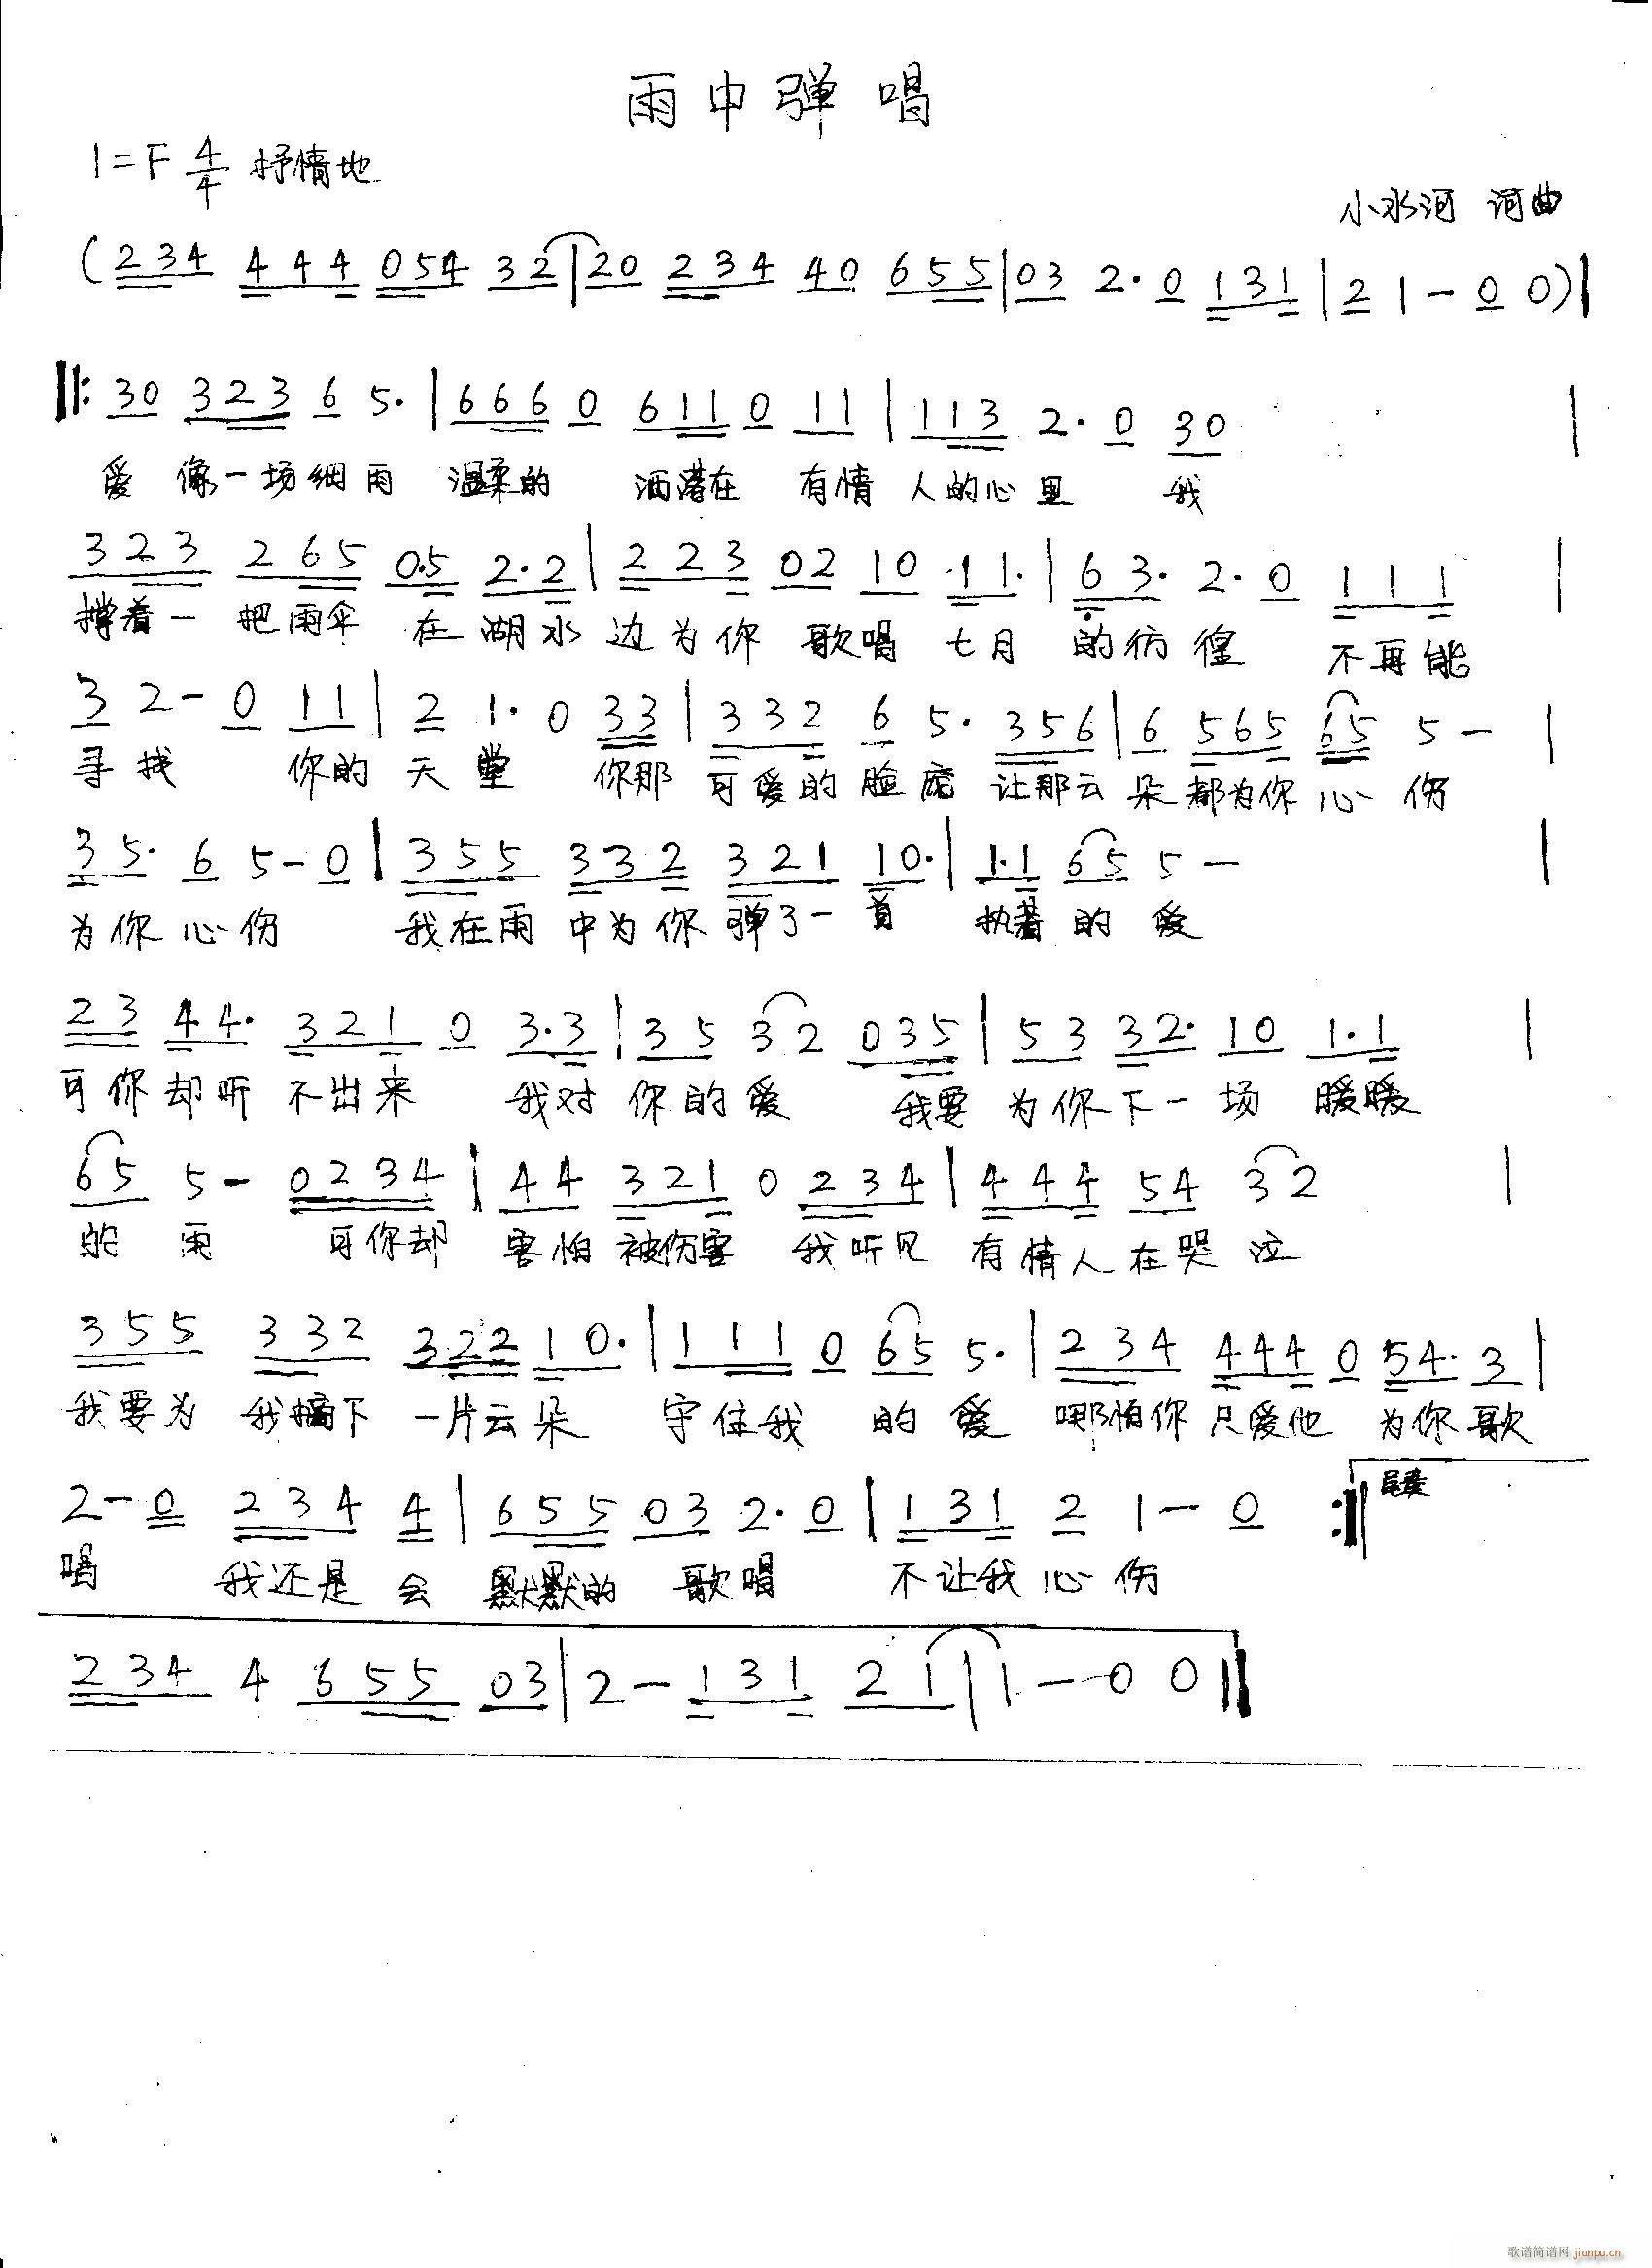 雨中弹唱
1=F 4/4 抒情地
小水河 词曲
(234 444 054 32|20 234 40 655|03 2·0 131|2 1-0 0)|
‖: 30 323 6 5·|666 0 611 0 11|113 2·0 30|
爱 像一场细雨 温柔的 洒落在 有情人的心里 我
323 265 0·5 2·2|223 02 10 11·|63· 2·0 111|
撑着一把雨伞 在湖水边为你 歌唱 七月 的彷徨 不再能
3 2-0 11|2 1·0 33|332 6 5· 356|6 565 65 5-|
寻找 你的天堂 你那可爱的脸庞 让那云朵都为你心伤
35· 6 5-0|355 332 321 10·|1·1 65 5-|
为你心伤 我在雨中为你弹了一首 执着的爱
23 44· 321 0 3·3|35 32 035|53 32· 10 1·1|
可你却听不出来 我对你的爱 我要为你下一场 暖暖
65 5-0234|44 321 0 234|444 54 32|
的雨 可你却害怕被伤害 我听见有情人在哭泣
355 332 322 10·|111 0 65 5·|234 444 0 54· 3|
我要为我摘下一片云朵 守住我的爱 哪怕你只爱他 为你歌
2-0 234 4|655 03 2·0|131 2 1-0 :‖ 尾奏
唱 我还是会默默的歌唱 不让我心伤
234 4 655 03|2-131 21|1-0 0‖
歌谱简谱网 jianpu.cn